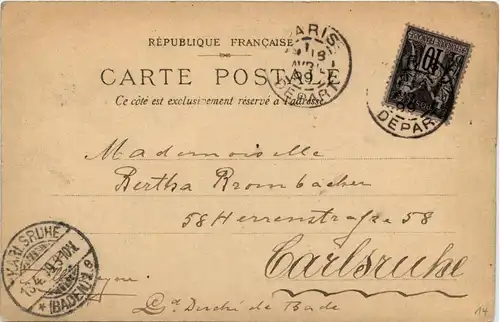 RÉPUBLIQUE FRANÇAISE
CARTE POSTALE
Ce côté est exclusivement réservé à l'adresse
PARIS
18
AVRIL
99
DEPART
10
DEPART
Mademoiselle
Bertha Brombacher
58 Herrenstraße 58
Carlsruhe
Gd Duché de Bade
KARLSRUHE
(BADEN)
14